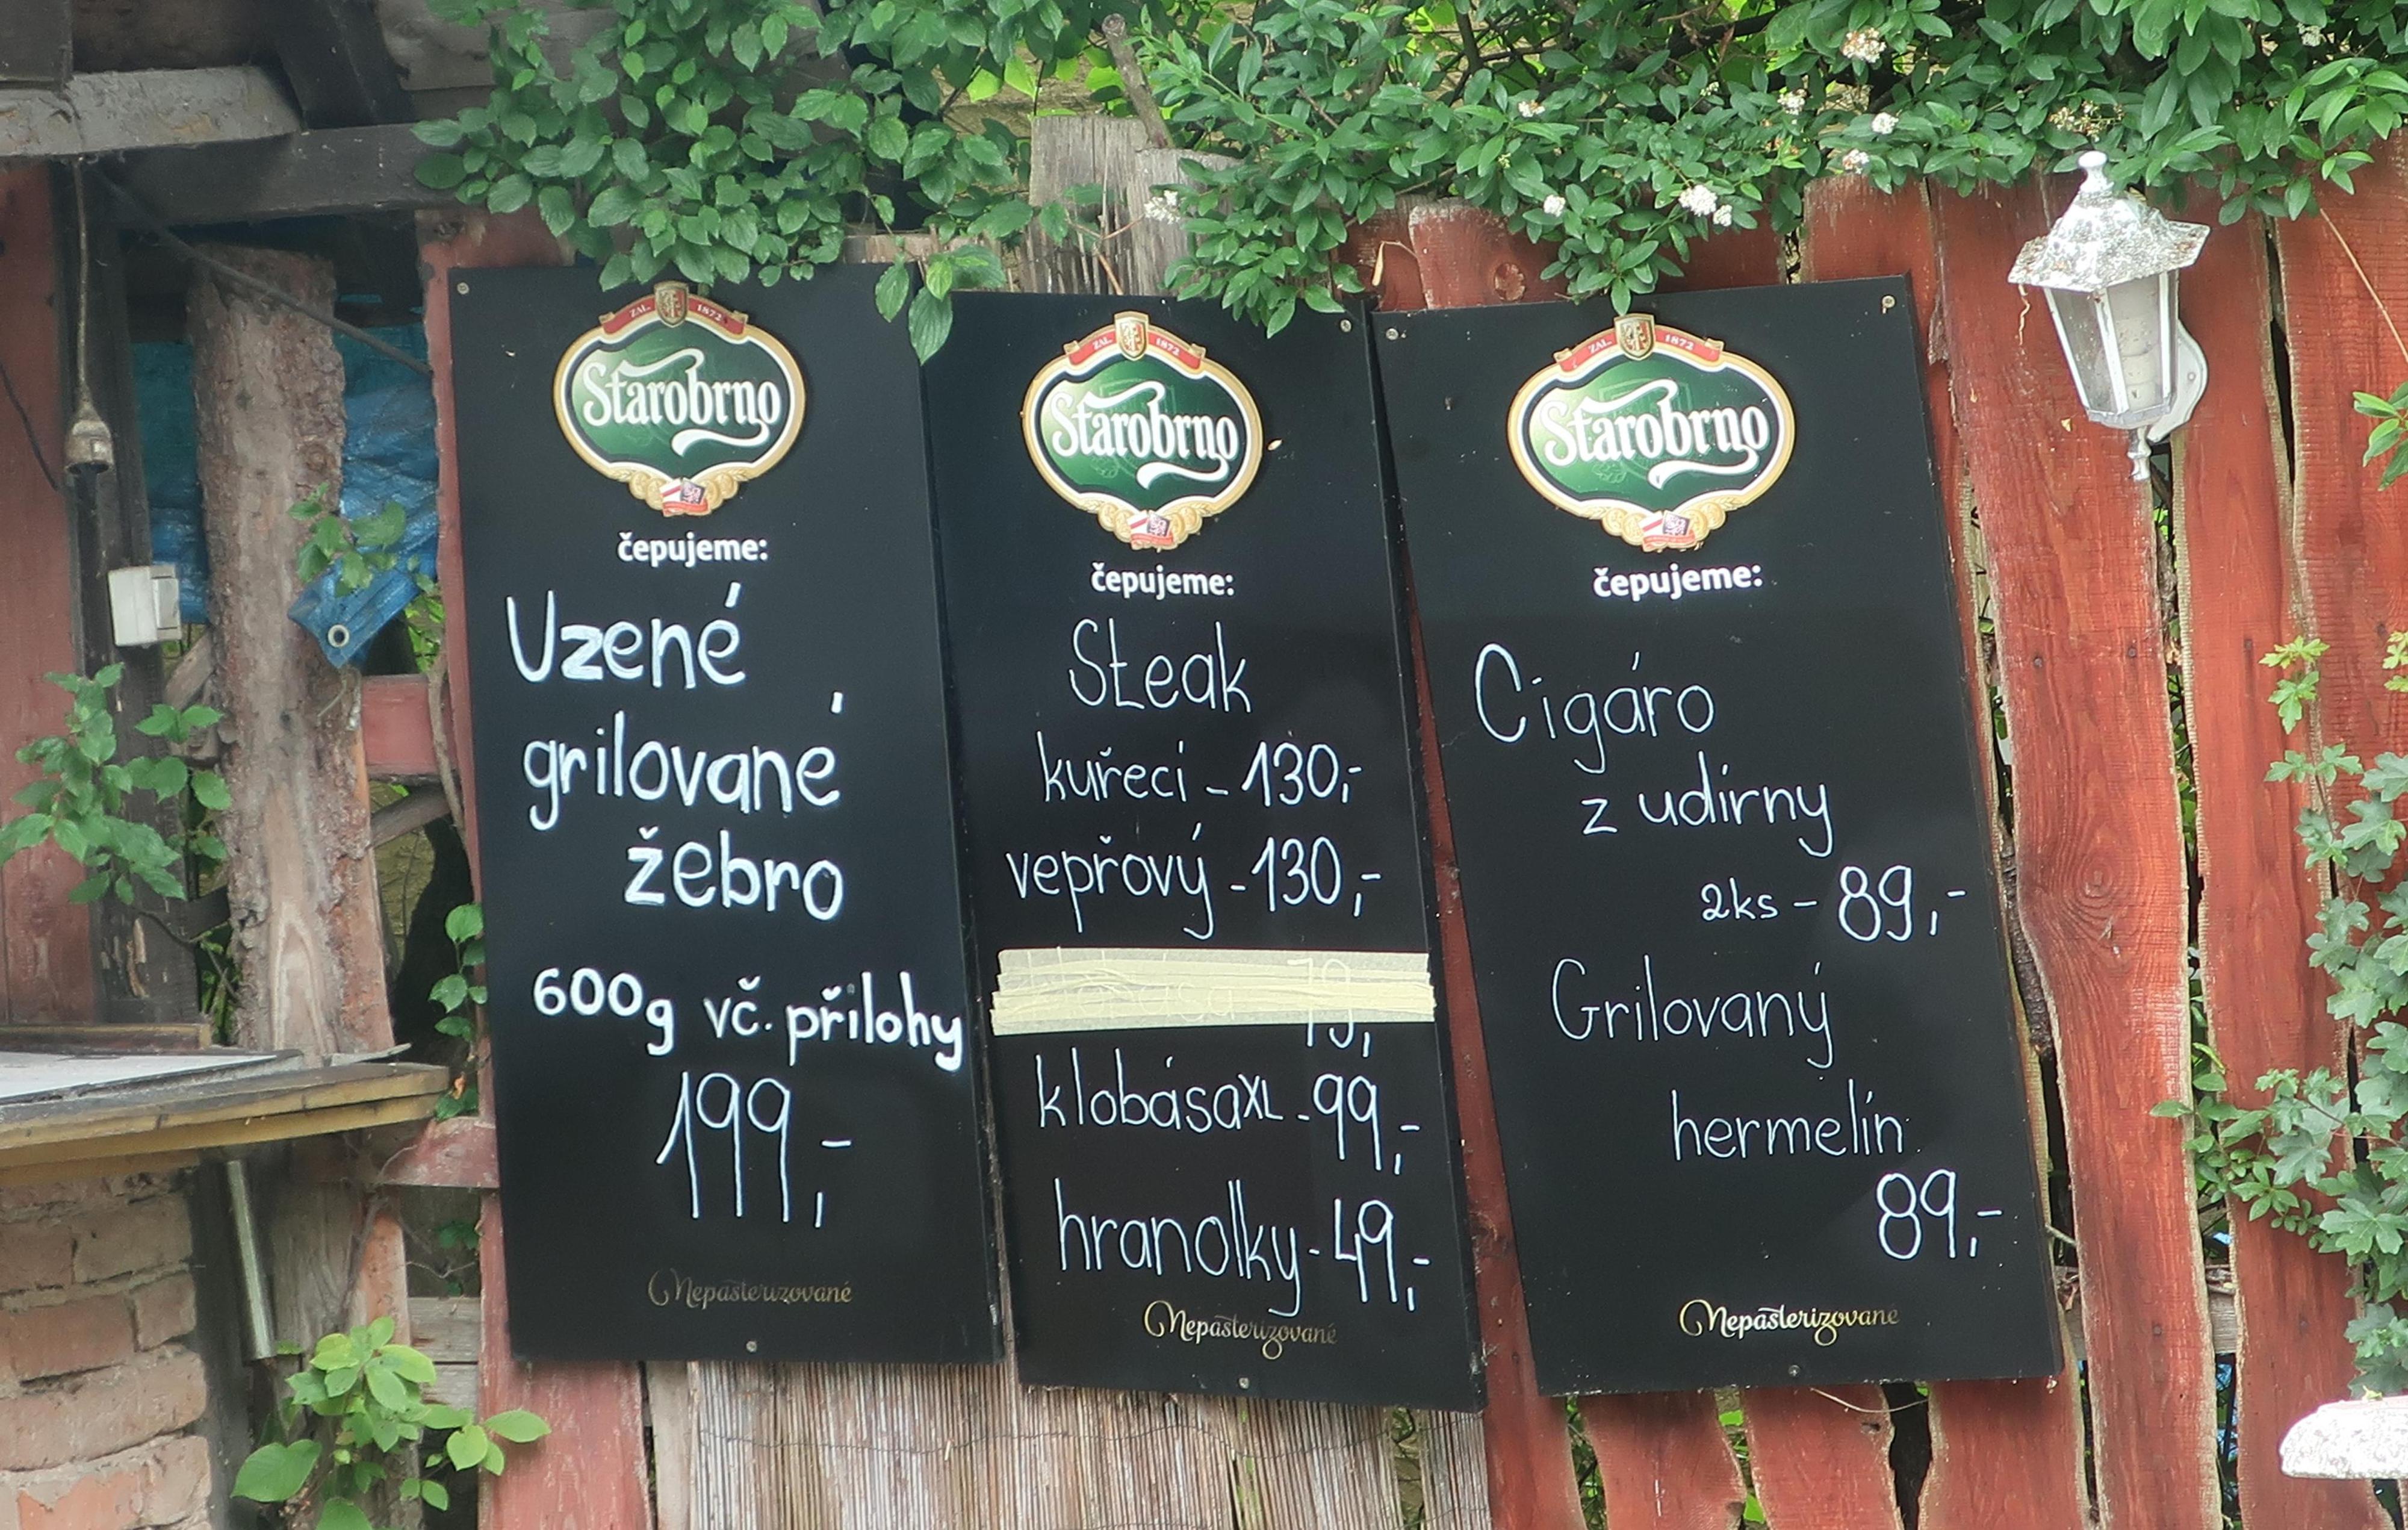 ZAL. 1872
Starobrno
čepujeme:
Uzené
grilované
žebro
600g vč. přílohy
199,-
Nepasterizované
ZAL. 1872
Starobrno
čepujeme:
Steak
kuřecí - 130,-
vepřový - 130,-
klobása XL - 99,-
hranolky - 49,-
Nepasterizované
ZAL. 1872
Starobrno
čepujeme:
Cigáro
z udírny
2ks - 89,-
Grilovaný
hermelín
89,-
Nepasterizované